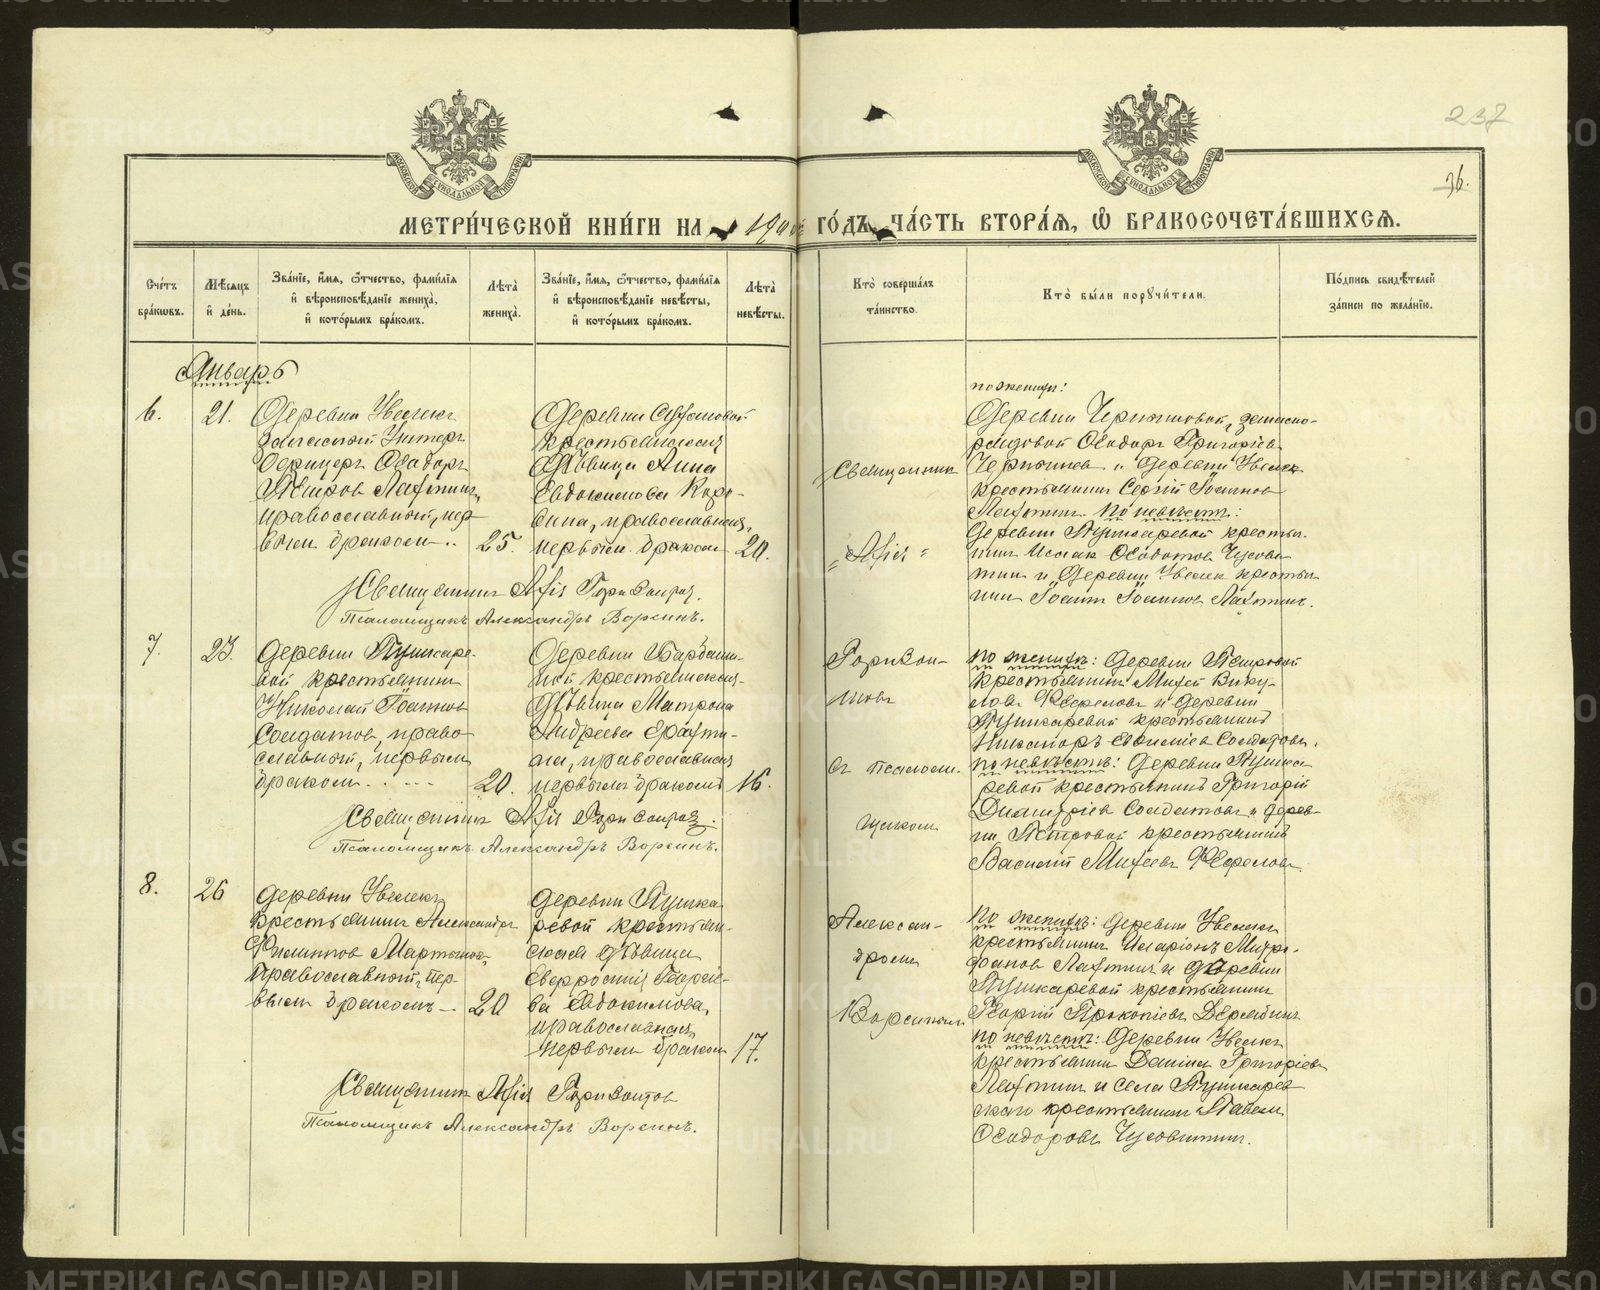 237
36.
МОСКОВСКОЙ СѴНОДАЛЬНОЙ ТИПОГРАФІИ
МОСКОВСКОЙ СѴНОДАЛЬНОЙ ТИПОГРАФІИ
МЕТРИ́ЧЕСКОЙ КНИ́ГИ НА 190 ГО́ДЪ, ЧА́СТЬ ВТОРА́Я, Ѡ БРАКОСОЧЕТА́ВШИХСЯ.
Сче́тъ бра́кѡвъ.
Мѣ́сяцъ и҆ де́нь.
Зва́нїе, и҆́мя, ѻ҆́тчество, фами́лїя и҆ вѣроисповѣ́данїе жениха̀, и҆ кото́рымъ бра́комъ.
Лѣ́та жениха̀.
Зва́нїе, и҆́мя, ѻ҆́тчество, фами́лїя и҆ вѣроисповѣ́данїе невѣ́сты, и҆ кото́рымъ бра́комъ.
Лѣ́та невѣ́сты.
Кто̀ соверша́лъ та́инство.
Кто̀ бы́ли порꙋчи́тели.
По́дпись свидѣ́телей за́писи по жела́нїю.
Январь
6.
21.
Деревни Увелекъ
запасный Унтеръ
Офицеръ Ѳеодоръ
Петровъ Лахтинъ,
православный, пер
вымъ бракомъ..
25.
Деревни
крестьянская
дѣвица Анна
Евдокимова
православная,
первымъ бракомъ
20.
Священникъ
"Аѳія"
по женихѣ:
Деревни
Ѳеодоръ Григоріевъ
и деревни Увелекъ
крестьянинъ Сергій Іоанновъ
Лахтинъ. По невѣстѣ:
Деревни Пушкаревой крестья
нинъ Исаакъ Ѳеодотовъ Чусови
тинъ и деревни Увелекъ крестья
нинъ Іоаннъ Іоанновъ Лахтинъ.
Священникъ Аѳія Горизонтовъ.
Псаломщикъ Александръ Ворсинъ.
7.
23.
Деревни Пушкаре-
вой крестьянинъ
Николай Іоанновъ
Солдатовъ, право
славный, первымъ
бракомъ
20.
Деревни
ной крестьянская
дѣвица Матрона
Андреева
православная
первымъ бракомъ
16.
Горизон-
товъ
съ псаломъ-
щикомъ
По женихѣ: Деревни Петровой
крестьянинъ Михей Вику-
ловъ Ѳефеловъ и деревни
Пушкаревой крестьянинъ
Никаноръ Солдатовъ.
По невѣстѣ: Деревни Пушка
ревой крестьянинъ Григорій
Димитріевъ Солдатовъ и дерев-
ни Петровой крестьянинъ
Василій Михеевъ Ѳефеловъ.
Священникъ Аѳія Горизонтовъ.
Псаломщикъ Александръ Ворсинъ.
8.
26
Деревни Увелекъ
крестьянинъ Александръ
Филипповъ Мартыновъ,
православный, пер-
вымъ бракомъ
20
Деревни Пушка
ревой крестьян-
ская дѣвица
Евфросинія Георгіе-
ва Евдокимова,
православная,
первымъ бракомъ
17.
Алексан-
дромъ
Ворсинымъ
По женихѣ: Деревни Увелекъ
крестьянинъ Иларіонъ Митро-
фановъ Лахтинъ и деревни
Пушкаревой крестьянинъ
Георгій Прокопіевъ
По невѣстѣ: Деревни Увелекъ
крестьянинъ Даніилъ Григоріевъ
Лахтинъ и села Пушкарев
скаго крестьянинъ Павелъ
Ѳеодоровъ Чусовитинъ.
Священникъ Аѳія Горизонтовъ
Псаломщикъ Александръ Ворсинъ.
METRIKI.GASO-URAL.RU